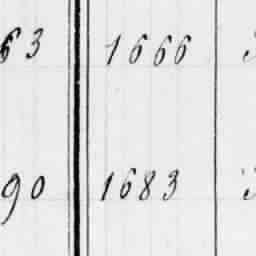 63 1666
90 1683